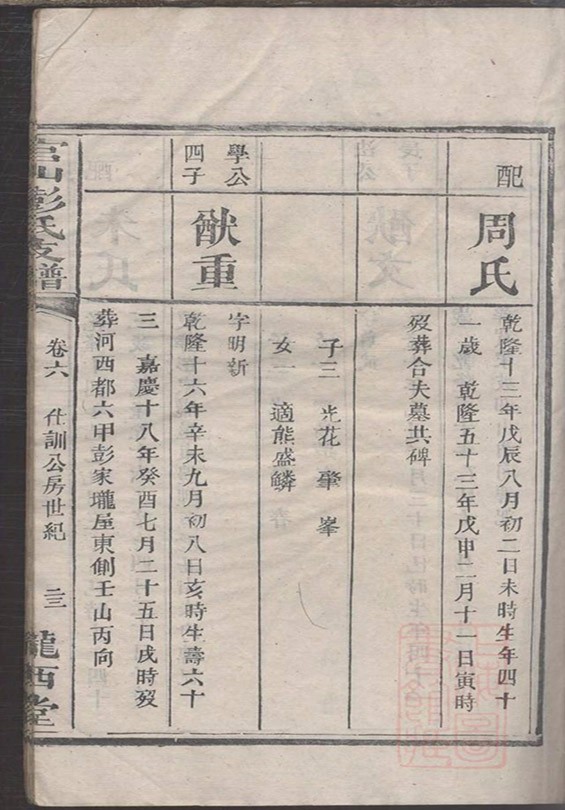 配
周氏
乾隆十三年戊辰八月初二日未時生年四十
一歲 乾隆五十三年戊申二月十一日寅時
歿葬合夫墓共碑
子三 光花 肇 峯
女一 適熊盛鱗
學公
四子
猷重
字明新
乾隆十六年辛未九月初八日亥時生壽六十
三 嘉慶十八年癸酉七月二十五日戌時歿
葬河西都六甲彭家壠屋東側壬山丙向
官山彭氏支譜
卷六 仕訓公房世紀 二三
隴西堂